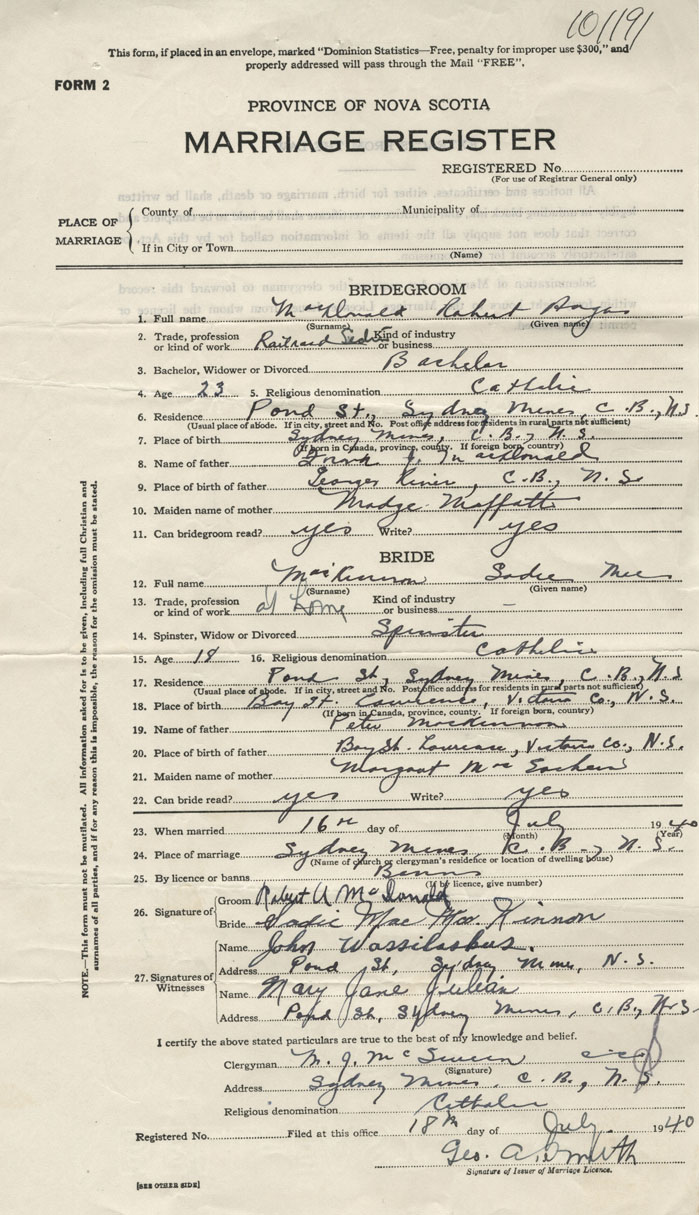 101191
This form, if placed in an envelope, marked "Dominion Statistics—Free, penalty for improper use $300," and
properly addressed will pass through the Mail "FREE".
FORM 2
PROVINCE OF NOVA SCOTIA
MARRIAGE REGISTER
REGISTERED No.
(For use of Registrar General only)
PLACE OF MARRIAGE
County of Municipality of
If in City or Town
(Name)
BRIDEGROOM
1. Full name MacDonald Robert Angus
(Surname) (Given name)
2. Trade, profession or kind of work Railroad Kind of industry or business
3. Bachelor, Widower or Divorced Bachelor
4. Age 23 5. Religious denomination Catholic
6. Residence Pond St., Sydney Mines, C.B., N.S.
(Usual place of abode. If in city, street and No. Post office address for residents in rural parts not sufficient)
7. Place of birth Sydney Mines, C.B., N.S.
(If born in Canada, province, county. If foreign born, country)
8. Name of father Frank J. MacDonald
9. Place of birth of father Georges River, C.B., N.S.
10. Maiden name of mother Madge Moffatt
11. Can bridegroom read? yes Write? yes
BRIDE
12. Full name MacKinnon Sadie Mae
(Surname) (Given name)
13. Trade, profession or kind of work at home Kind of industry or business —
14. Spinster, Widow or Divorced Spinster
15. Age 18 16. Religious denomination Catholic
17. Residence Pond St, Sydney Mines, C.B., N.S
(Usual place of abode. If in city, street and No. Post office address for residents in rural parts not sufficient)
18. Place of birth Bay St. Lawrence, Victoria Co., N.S.
(If born in Canada, province, county. If foreign born, country)
19. Name of father Peter MacKinnon
20. Place of birth of father Bay St. Lawrence, Victoria Co., N.S.
21. Maiden name of mother Margaret MacEachern
22. Can bride read? yes Write? yes
23. When married 16th day of July 1940
(Month) (Year)
24. Place of marriage Sydney Mines, C.B., N.S.
(Name of church or clergyman's residence or location of dwelling house)
25. By licence or banns Banns
(If by licence, give number)
26. Signature of
Groom Robert A McDonald
Bride Sadie Mae MacKinnon
27. Signatures of Witnesses
Name John
Address Pond St, Sydney Mines, N.S.
Name Mary Jane Julian
Address Pond St, Sydney Mines, C.B., N.S.
I certify the above stated particulars are true to the best of my knowledge and belief.
Clergyman M. J. McSween
(Signature)
Address Sydney Mines, C.B., N.S.
Religious denomination Catholic
Registered No. Filed at this office 18th day of July 1940
Geo. A. Smith
Signature of Issuer of Marriage Licence.
[SEE OTHER SIDE]
NOTE.—This form must not be mutilated. All information asked for is to be given, including full Christian and
surnames of all parties, and if for any reason this is impossible, the reason for the omission must be stated.